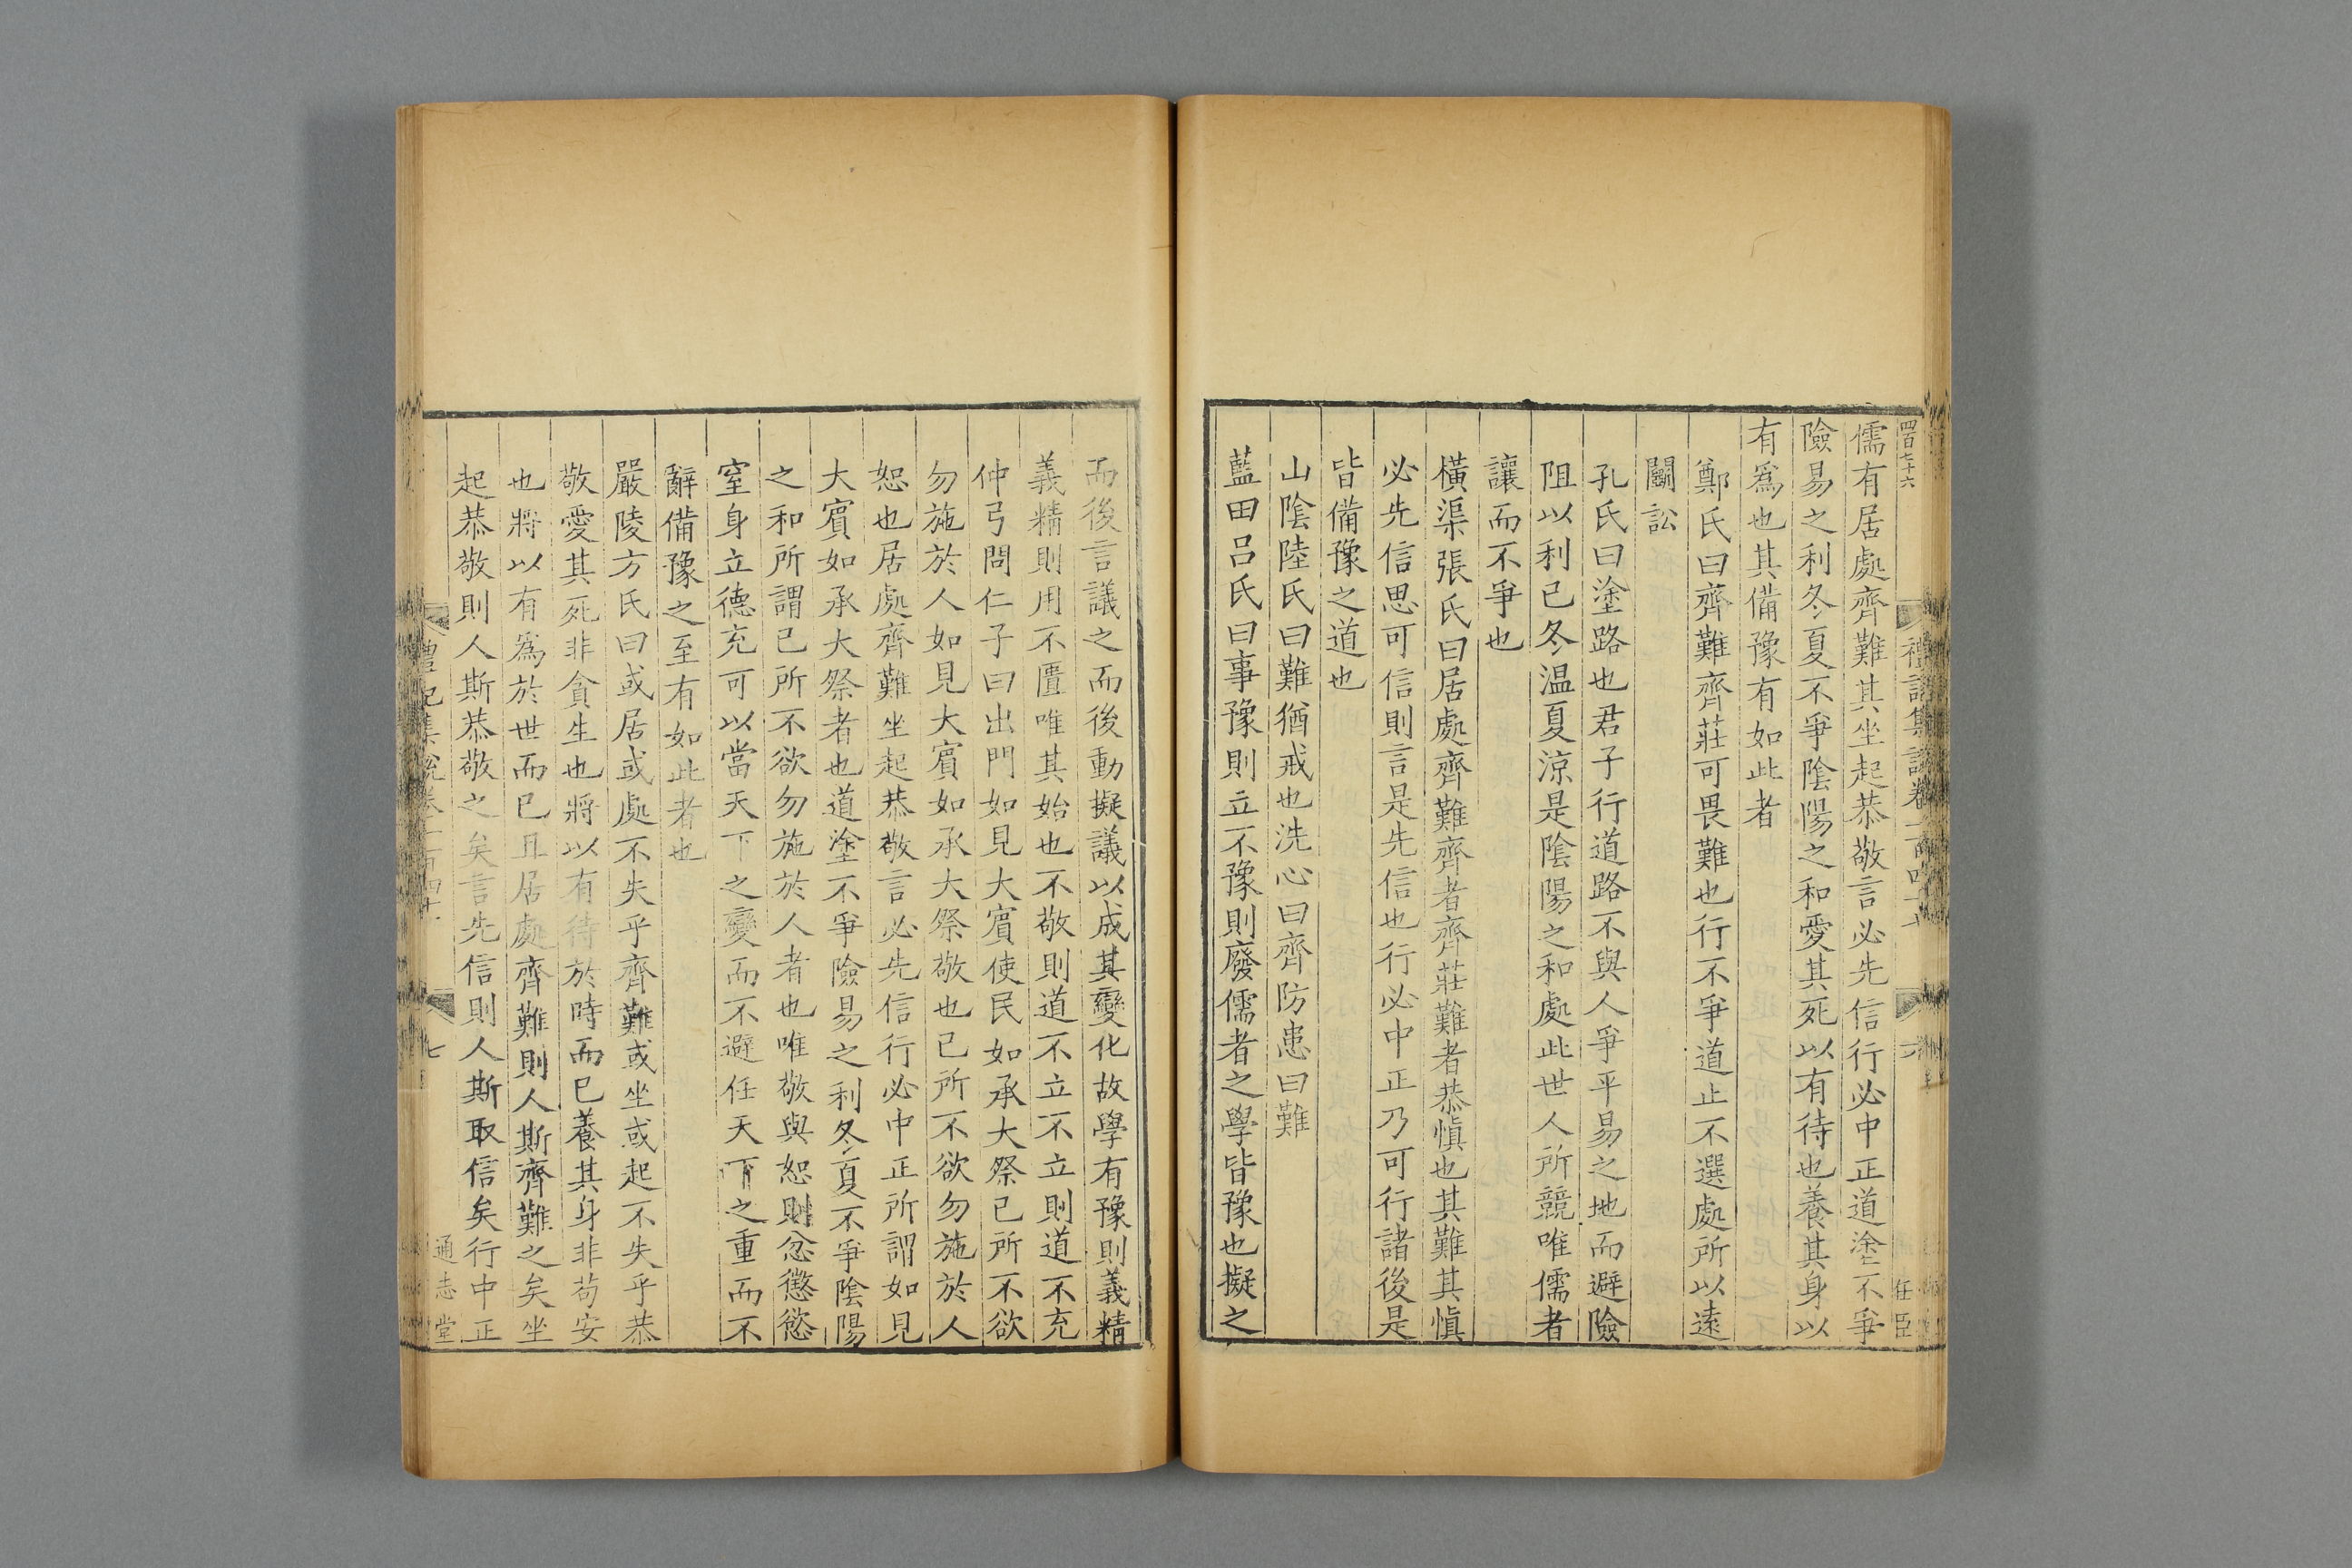 四百七十六
儒有居處齊難其坐起恭敬言必先信行必中正道塗不爭
險易之利冬夏不爭陰陽之和愛其死以有待也養其身以
有爲也其備豫有如此者
鄭氏曰齊難齊莊可畏難也行不爭道止不選處所以遠
鬬訟
孔氏曰塗路也君子行道路不與人爭平易之地而避險
阻以利己冬温夏涼是陰陽之和處此世人所競唯儒者
讓而不爭也
橫渠張氏曰居處齊難齊者齊莊難者恭愼也其難其愼
必先信思可信則言是先信也行必中正乃可行諸後是
皆備豫之道也
山陰陸氏曰難猶戒也洗心曰齊防患曰難
藍田呂氏曰事豫則立不豫則廢儒者之學皆豫也擬之
而後言議之而後動擬議以成其變化故學有豫則義精
義精則用不匱唯其始也不敬則道不立不立則道不充
仲弓問仁子曰出門如見大賓使民如承大祭己所不欲
勿施於人如見大賓如承大祭敬也己所不欲勿施於人
恕也居處齊難坐起恭敬言必先信行必中正所謂如見
大賓如承大祭者也道塗不爭險易之利冬夏不爭陰陽
之和所謂己所不欲勿施於人者也唯敬與恕則忿懲慾
窒身立德充可以當天下之變而不避任天下之重而不
辭備豫之至有如此者也
嚴陵方氏曰或居或處不失乎齊難或坐或起不失乎恭
敬愛其死非貪生也將以有待於時而已養其身非苟安
也將以有爲於世而已且居處齊難則人斯齊難之矣坐
起恭敬則人斯恭敬之矣言先信則人斯取信矣行中正
禮記集說卷一百四十七
七
通志堂